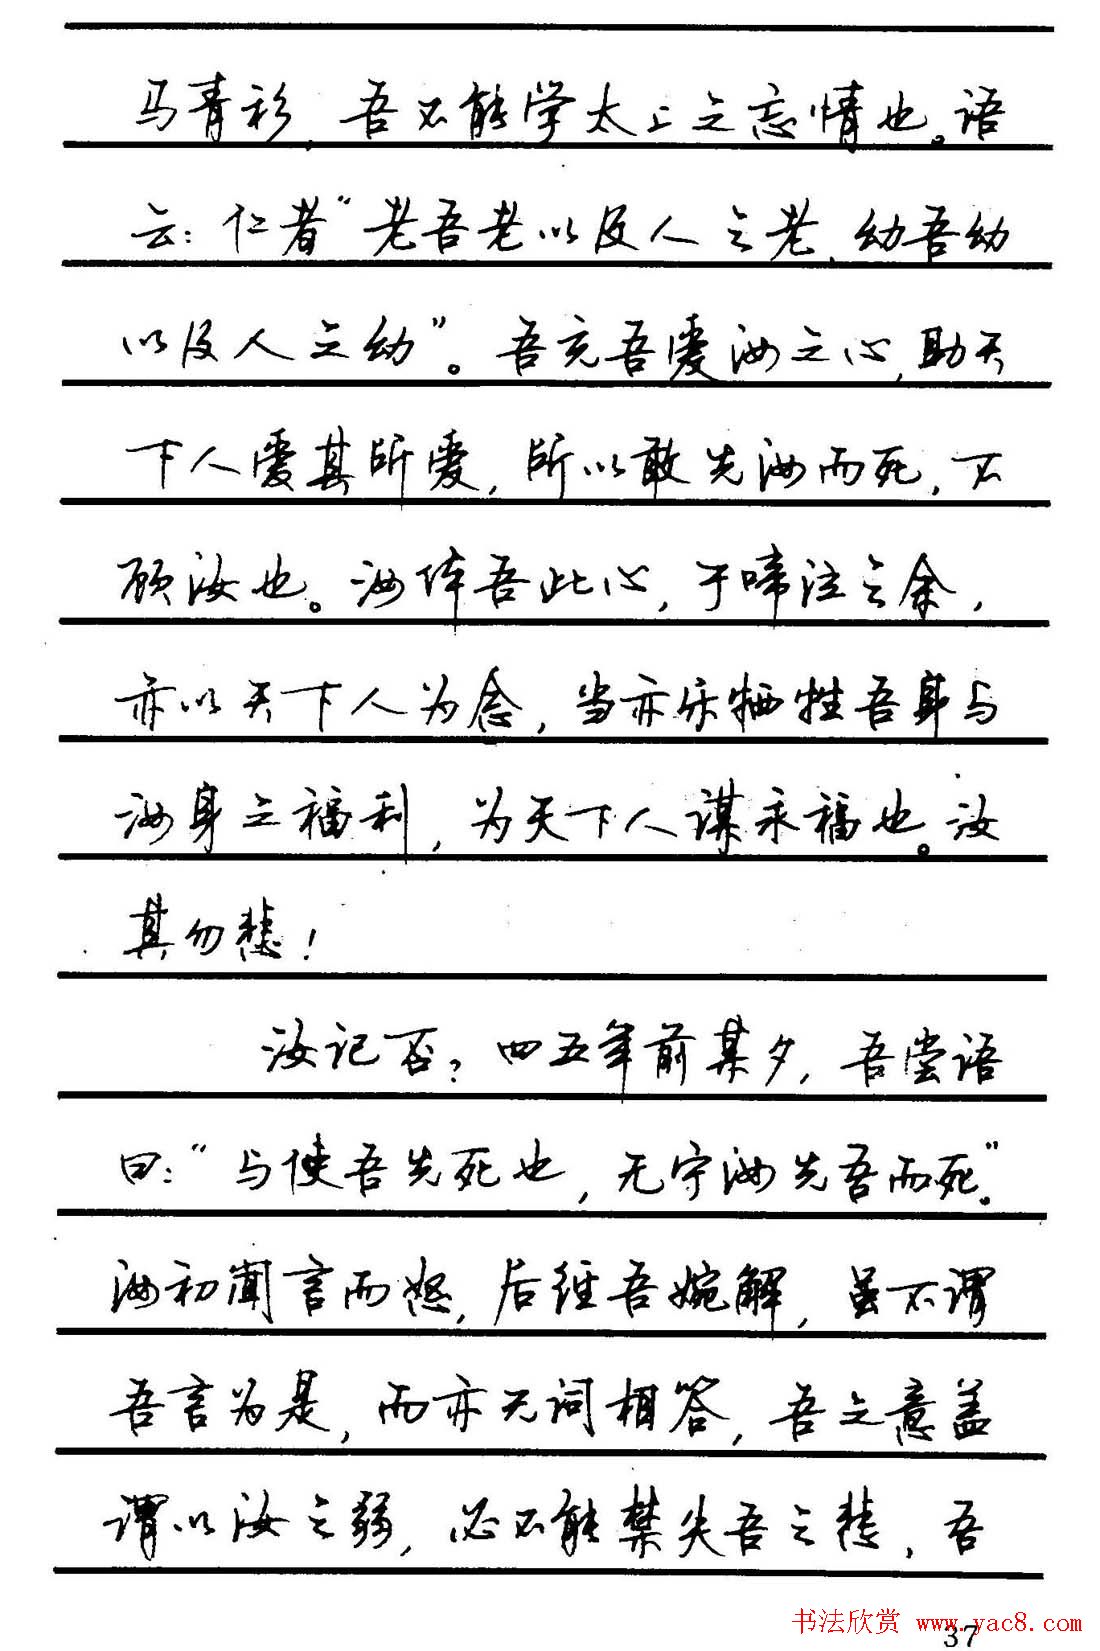 马青衫，吾不能学太上之忘情也。语
云：仁者“老吾老以及人之老，幼吾幼
以及人之幼”。吾充吾爱汝之心，助天
下人爱其所爱，所以敢先汝而死，不
顾汝也。汝体吾此心，于啼泣之余，
亦以天下人为念，当亦乐牺牲吾身与
汝身之福利，为天下人谋永福也。汝
其勿悲！
汝记否？四五年前某夕，吾尝语
曰：“与使吾先死也，无宁汝先吾而死”。
汝初闻言而怒，后经吾婉解，虽不谓
吾言为是，而亦无词相答，吾之意盖
谓以汝之弱，必不能禁失吾之悲，吾
书法欣赏 www.yac8.com
37